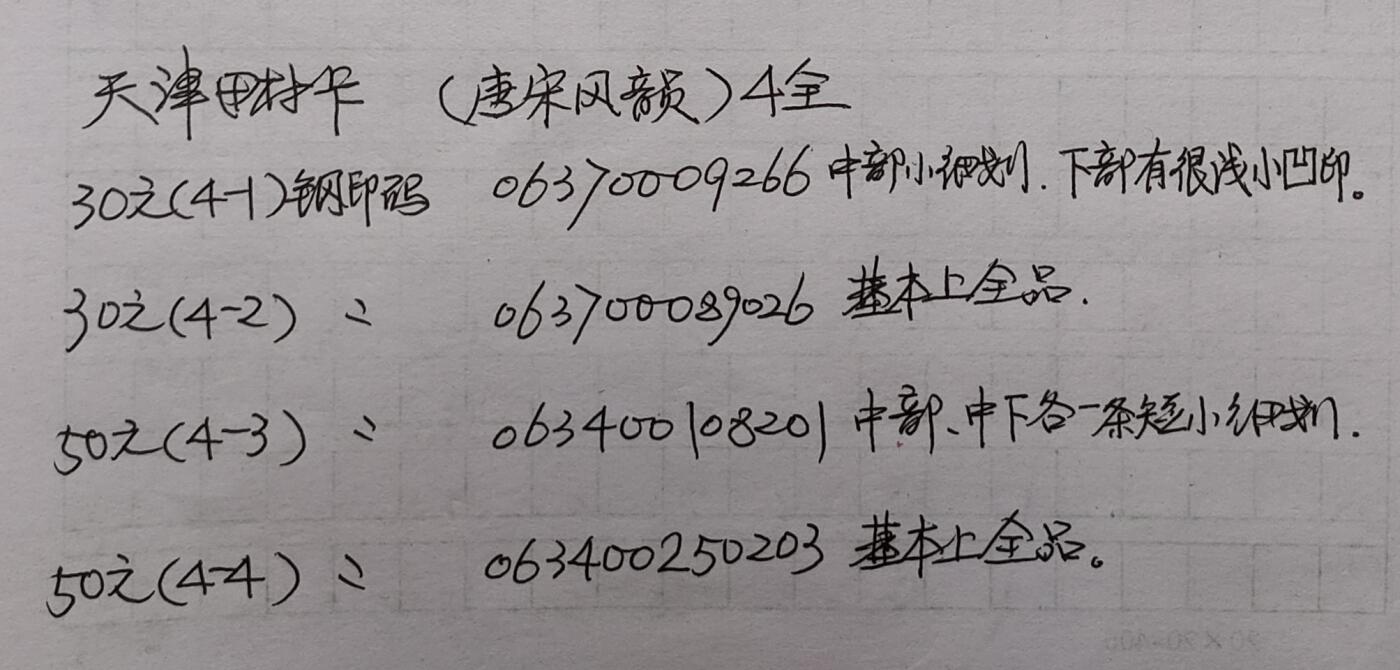 天津田村卡 (唐宋风韵) 4全
30元(4-1)钢印码 06370009266 中部小细划.下部有很浅小凹印。
30元(4-2) 〃 063700089026 基本上全品.
50元(4-3) 〃 063400108201 中部、中下各一条短小细划.
50元(4-4) 〃 063400250203 基本上全品。